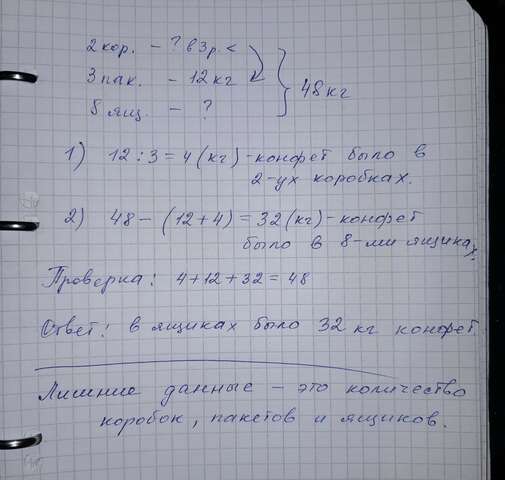 2 кор. - ? в 3 р. <
3 пак. - 12 кг
8 ящ. - ?
48 кг
1) 12 : 3 = 4 (кг) - конфет было в
2-ух коробках.
2) 48 - (12 + 4) = 32 (кг) - конфет
было в 8-ми ящиках.
Проверка: 4 + 12 + 32 = 48
Ответ: в ящиках было 32 кг конфет.
Лишние данные - это количество
коробок, пакетов и ящиков.